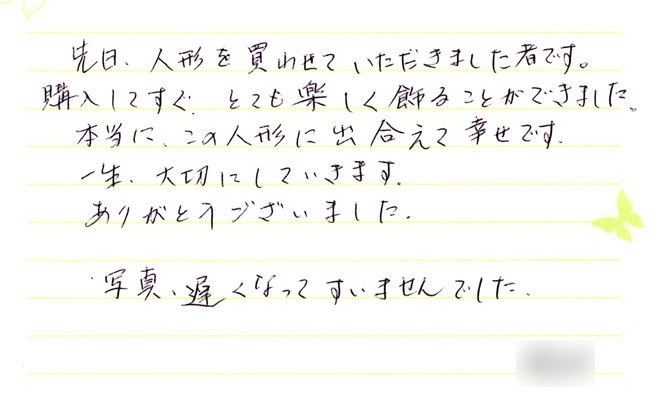 先日、人形を買わせていただきました者です。
購入してすぐ、とても楽しく飾ることができました。
本当に、この人形に出合えて幸せです。
一生、大切にしていきます。
ありがとうございました。
写真、遅くなってすいませんでした。